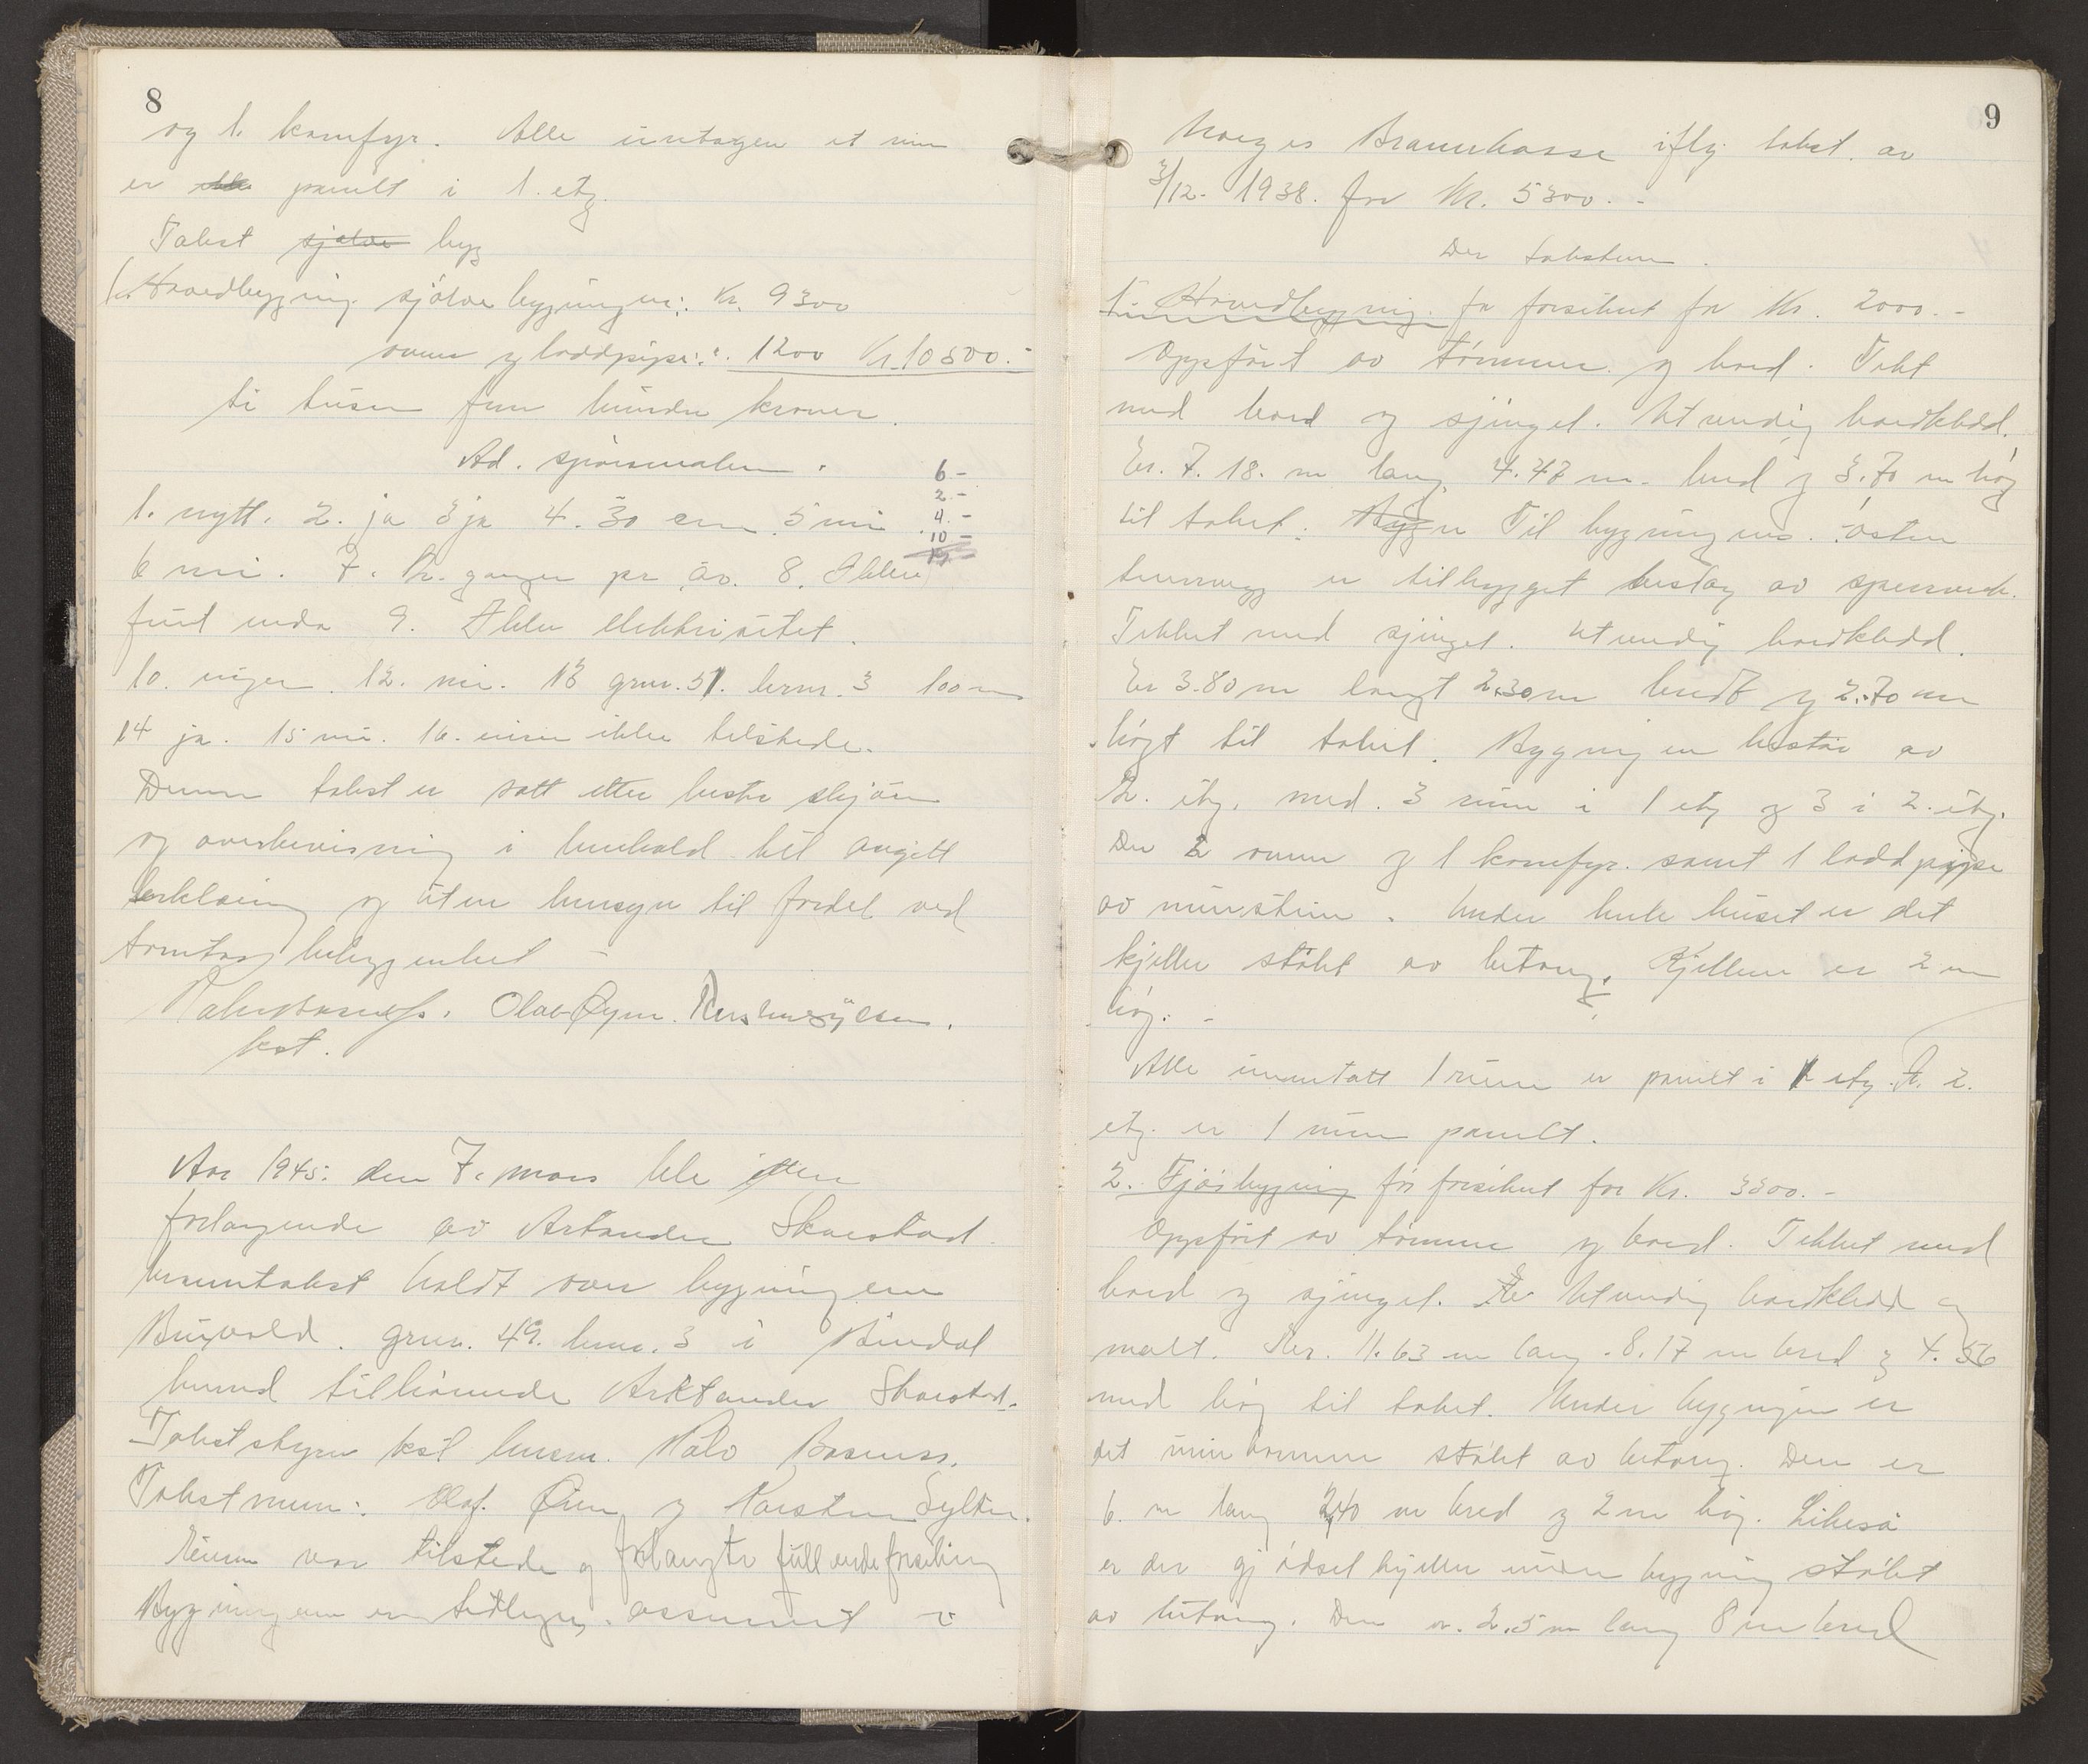 8
og 1. komfyr. Alle untagen et rum
er panelt i 1. etg.
Takst sjølve byg
1. Hovedbygning sjølve bygningen: Kr. 9300
ovner og loddpipe: " 1200 Kr. 10500.-
ti tusen fem hundre kroner.
Ad. spørsmålene.
6.-
2.-
4.-
10-
1. nytt. 2. ja 3 ja 4. 30 cm 5 nei
6 nei. 7. Kr. ganger pr. år. 8. Ikke
furt enda 9. Ikke elektrisitet.
10. ingen. 12. nei. 13 grnr. 51. brnr. 3 100 m
14 ja. 15 nei. 16. eieren ikke tilstede.
Denne takst er satt etter beste skjøn
og overbevisning i henhold til avgitt
erklæring og uten hensyn til fordel ved
tomtas beliggenhet -
Palv Rasmuss. Olav Øyen. Karsten Sylten.
kst.
Aar 1945: den 7. mars ble etter
forlangende av Arktander Skarstad
branntakst holdt over bygningene
Buvold. grnr. 49. brnr. 3 i Bindal
herred tilhørende Arktander Skarstad.
Takstskyn kst lensm. Palv Rasmuss.
Takstmenn: Olaf. Øien og Karsten Sylten.
Eieren var tilstede og forlangte full verdeforsikring
Bygningene er tidligere assurert i
9
Norges Brannkasse iflg takst av
3/12- 1938. for Kr. 5300.-
Der taksteres.
1. Hovedbygning. før forsikret for Kr. 2000.-
Oppført av tømmer og bord. Tekt
med bord og sjingel. Utvendig bordkledd.
Er. 7.18. m lang, 4.47 m. bred og 3.70 m høg
til taket. Bygn Til bygningens østre
tverrvegg er tilbygget bislag av sperreverk.
Tekket med sjingel. Utvendig bordkledd.
Er 3.80 m langt 2.30 m bredt og 2.70 m
høgt til taket. Bygningen består av
2. etg. med. 3 rum i 1 etg og 3 i 2. etg.
Der 2 ovner og 1 komfyr. samt 1 loddpipe
av murstein. Under hele huset er det
kjeller støbt av betong. Kjelleren er 2 m
høg. -
Alle unntatt 1 rum er panelt i 1 etg. I 2.
etg. er 1 rum panelt.
2. Fjøsbygning før forsikret for Kr. 3300.-
Oppført av tømmer og bord. Tekket med
bord og sjingel. Er Utvendig bordkledd og
malt. Er. 11.63 m lang. 8.17 m bred og 4.56
med høg til taket. Under bygningen er
det urinkomme støbt av betong. Den er
6. m lang 2,40 m bred og 2 m høg. Likeså
er der gjødselkjeller under bygning støbt
av betong. Den er. 2.5 m lang 8 m bred